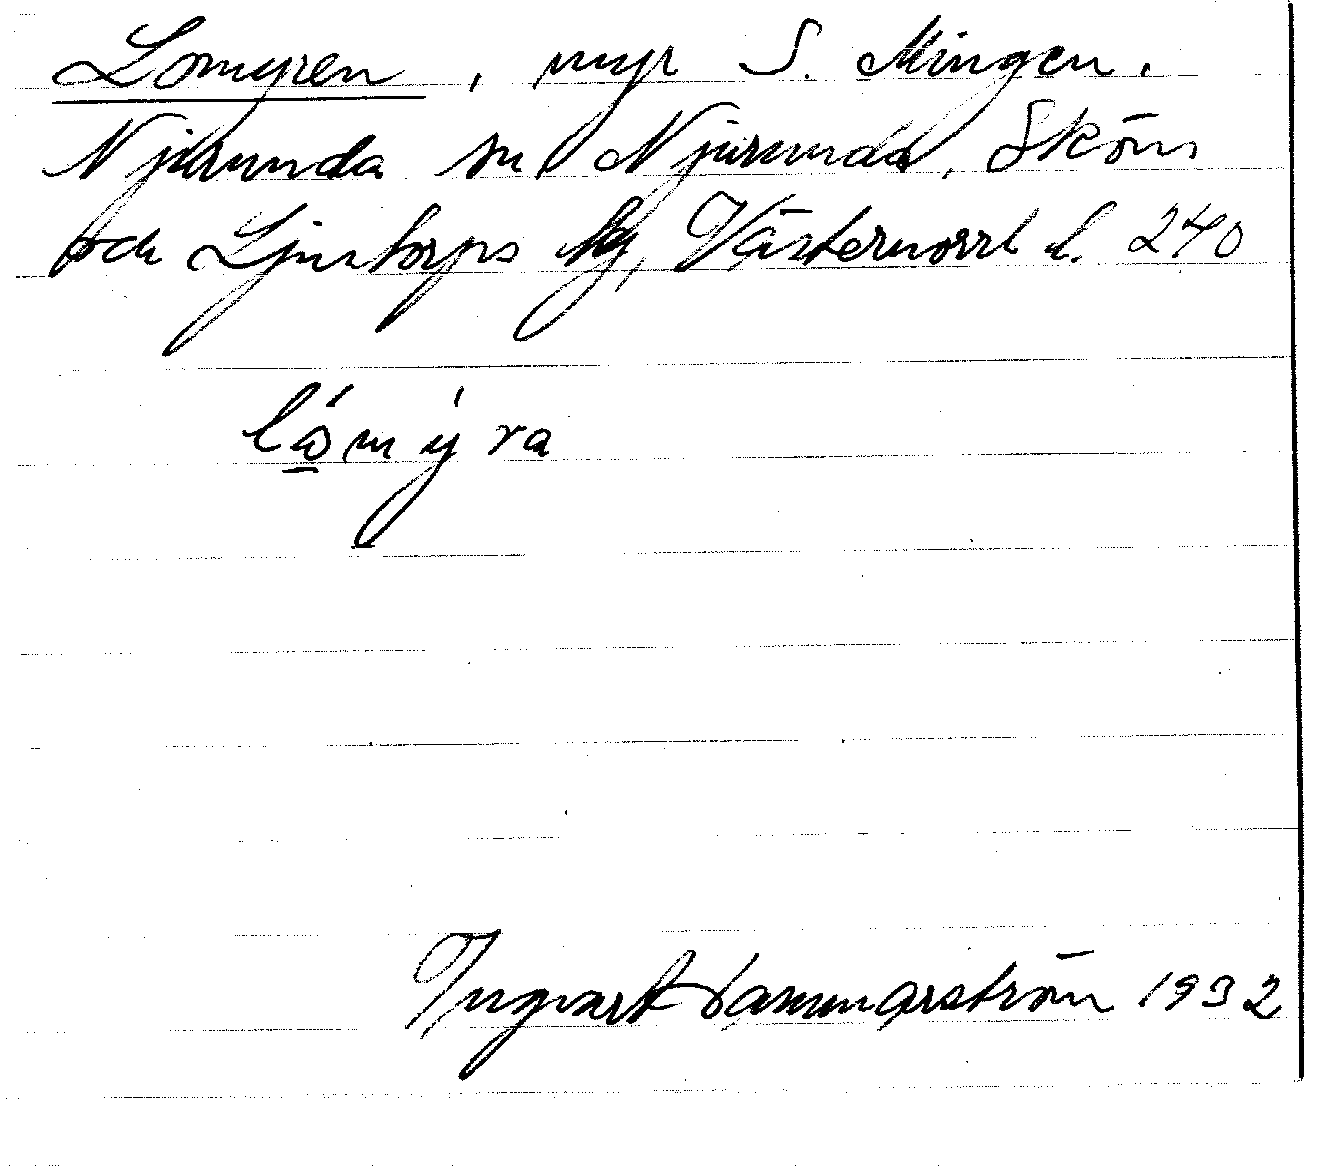 Lomyren, myr S. Mingen.
Njurunda sn, Njurunda, Sköns
och Ljustorps tg, Västernorrl l. 240
lómýra
Ingvart Hammarström 1932